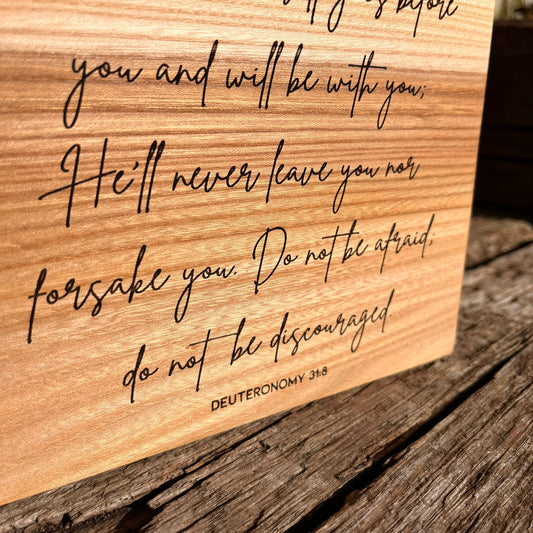 before
you and will be with you;
He'll never leave you nor
forsake you. Do not be afraid;
do not be discouraged.
DEUTERONOMY 31:8